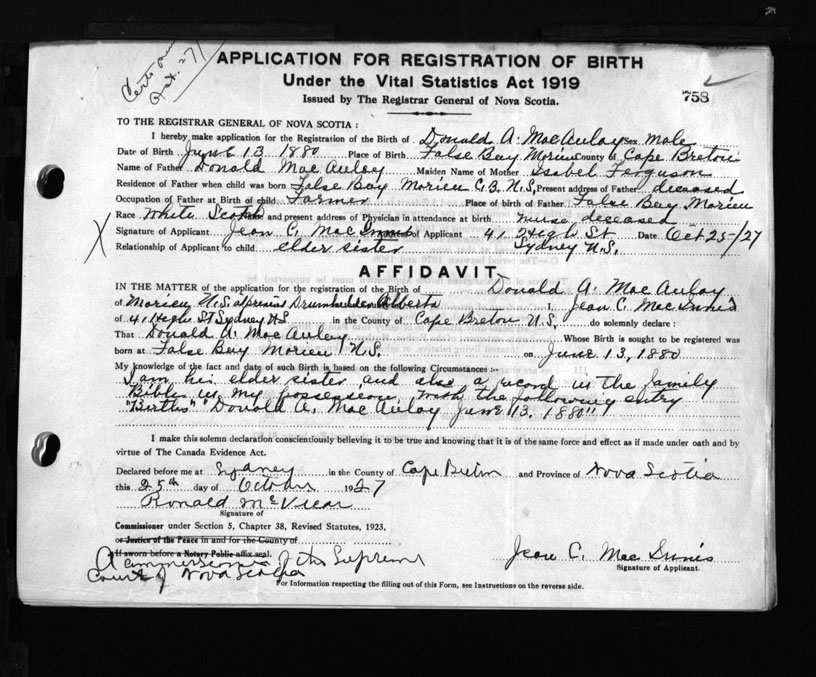 Oct. 27
APPLICATION FOR REGISTRATION OF BIRTH
Under the Vital Statistics Act 1919
Issued by The Registrar General of Nova Scotia.
758
TO THE REGISTRAR GENERAL OF NOVA SCOTIA :
I hereby make application for the Registration of the Birth of Donald A. MacAulay Sex Male
Date of Birth June 13 1880 Place of Birth False Bay Morien County of Cape Breton
Name of Father Donald MacAulay Maiden Name of Mother Isabel Ferguson
Residence of Father when child was born False Bay Morien C.B. N.S. Present address of Father deceased
Occupation of Father at Birth of child Farmer Place of birth of Father False Bay Morien
Race White Scotch and present address of Physician in attendance at birth nurse deceased
Signature of Applicant Jean C. MacInnis Address of Applicant 41 High St Date Oct 25-/27
Relationship of Applicant to child elder sister Sydney N.S.
AFFIDAVIT
IN THE MATTER of the application for the registration of the Birth of Donald A. MacAulay
of Morien N.S. Drumheller Alberta I, Jean C. MacInnis
of 41 High St Sydney NS in the County of Cape Breton N.S. do solemnly declare :
That Donald A. MacAulay Whose Birth is sought to be registered was
born at False Bay Morien N.S. on June 13, 1880
My knowledge of the fact and date of such Birth is based on the following Circumstances :-
I am his elder sister and also a record in the family
Bible in my possession, with the following entry
"Births" "Donald A. MacAulay June 13, 1880"
I make this solemn declaration conscientiously believing it to be true and knowing that it is of the same force and effect as if made under oath and by
virtue of The Canada Evidence Act.
Declared before me at Sydney in the County of Cape Breton and Province of Nova Scotia
this 25th day of October 1927
Ronald McVicar
Signature of
Commissioner under Section 5, Chapter 38, Revised Statutes, 1923,
or Justice of the Peace in and for the County of
If sworn before a Notary Public affix seal.
A Commissioner of the Supreme
Court of Nova Scotia
Jean C. MacInnis
Signature of Applicant.
For Information respecting the filling out of this Form, see Instructions on the reverse side.